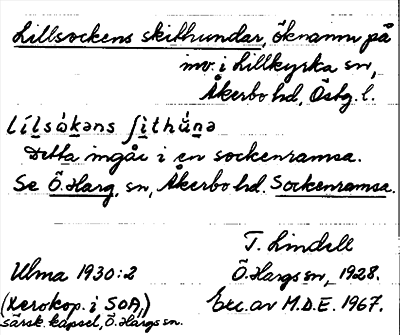 Lillsockens skithundar, öknamn på
inv. i Lillkyrka sn,
Åkerbo hd, Östg. l.
lílsòkəns ʃìthu̇́nə
Detta ingår i en sockenramsa.
Se Ö. Harg, sn, Åkerbo hd. Sockenramsa.
T. Lindell
Ulma 1930:2 Ö. Hargs sn, 1928.
(Xerokop. i SOA,) Exc. av M.D.E. 1967.
särsk. kapsel, Ö. Hargs sn.